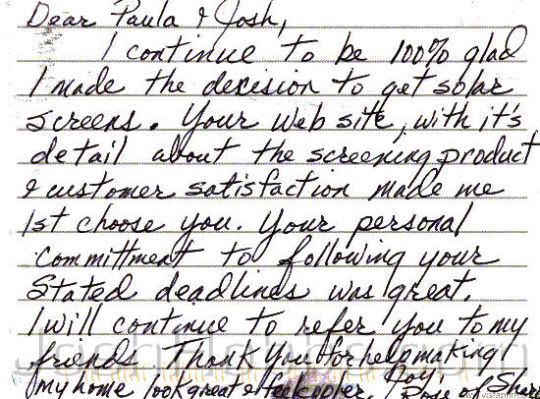 Dear Paula & Josh,
I continue to be 100% glad
I made the decision to get solar
screens. Your web site, with it's
detail about the screening product
& customer satisfaction made me
1st choose you. Your personal
committment to following your
stated deadlines was great.
I will continue to refer you to my
friends. Thank you for help making
my home look great & feel cooler. Roy,